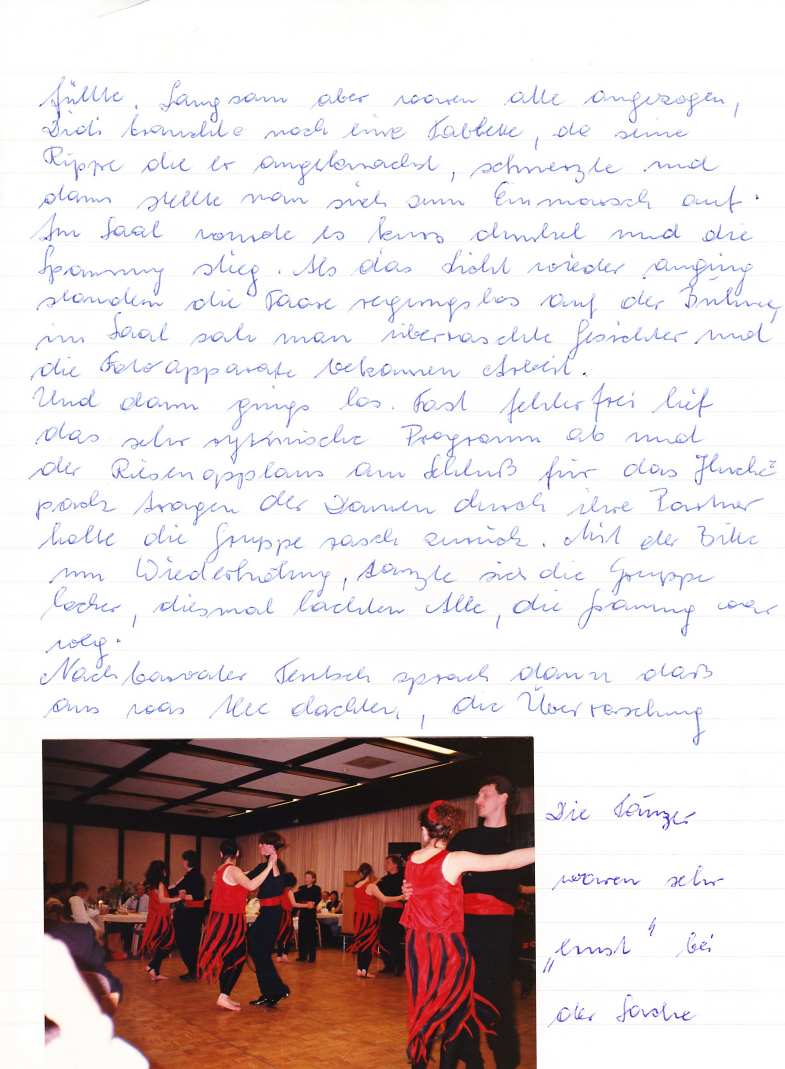 füllte. Langsam aber waren alle angezogen,
Didi brauchte noch eine Tablette, da seine
Rippe die er angebracht, schmerzte und
dann stellte man sich zum Einmarsch auf.
Im Saal wurde es kurz dunkel und die
Spannung stieg. Als das Licht wieder anging
standen die Paare regungslos auf der Bühne,
im Saal sah man überraschte Gesichter und
die Fotoapparate bekamen Arbeit.
Und dann gings los. Fast fehlerfrei lief
das sehr rytmische Programm ab und
der Riesenapplaus am Schluß für das Hucke-
pack tragen der Damen durch ihre Partner
holte die Gruppe rasch zurück. Mit der Bitte
um Wiederholung, tanzte sich die Gruppe
locker, diesmal lachten Alle, die Spannung war
weg.
Nachbarvater sprach dann daß
aus was Alle dachten, die Überraschung
Die Tänzer
waren sehr
„ernst" bei
der Sache